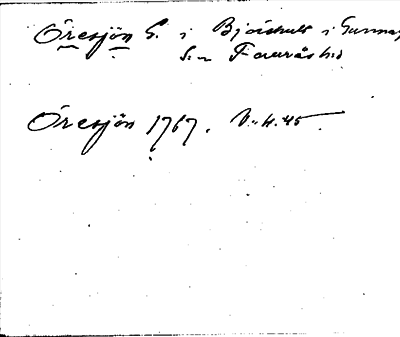 Öresjön S. i Björshult i Gunnar
S:n Faurås hd
Öresjön 1767. V. H. 45